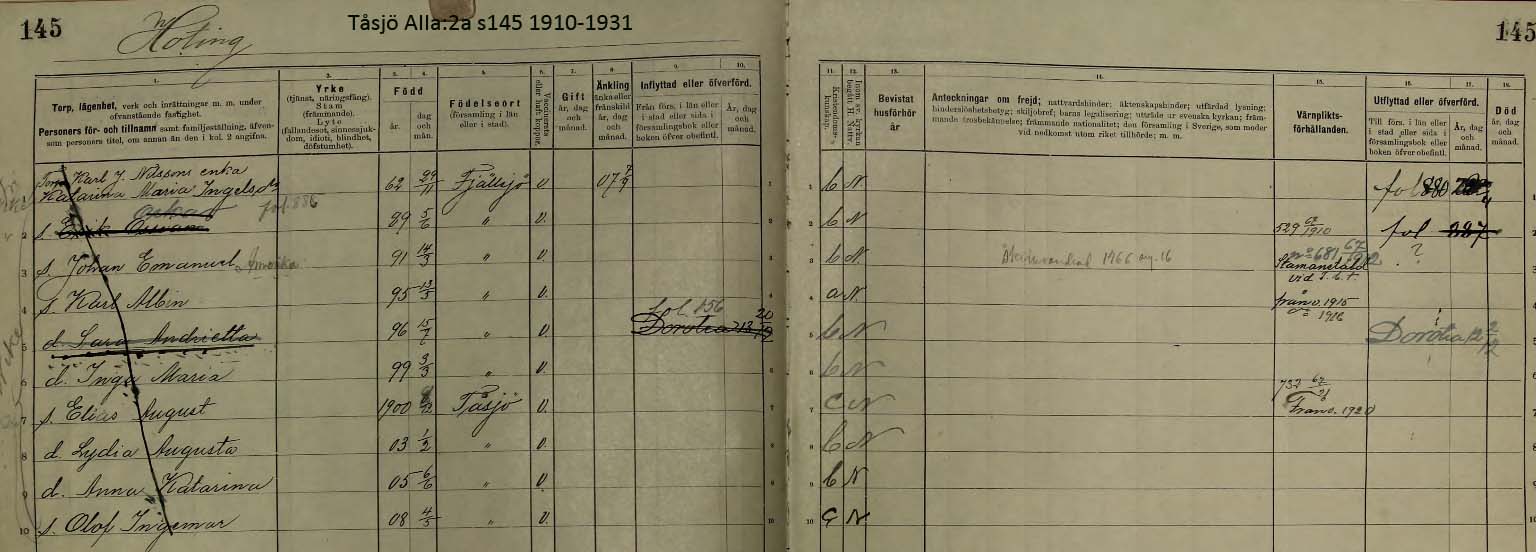 145
Tåsjö Alla:2a s145 1910-1931
145
Hoting
1.
Torp, lägenhet, verk och inrättningar m. m. under
ofvanstående fastighet.
Personers för- och tillnamn samt familjeställning, äfven-
som personers titel, om annan än den i kol. 2 angifna.
2.
Yrke
(tjänst, näringsfång).
Stam
(främmande).
Lyte
(fallandesot, sinnessjuk-
dom, idioti, blindhet,
döfstumhet).
3. 4.
Född
år.
dag
och
månad.
5.
Födelseort
(församling i län
eller i stad).
6.
Vaccinerats
eller haft koppor.
7.
Gift
år, dag
och
månad.
8.
Änkling
änka eller
frånskild
år, dag
och
månad.
9. 10.
Inflyttad eller öfverförd.
Från förs. i län eller
i stad eller sida i
församlingsbok eller
boken öfver obefintl.
År, dag
och
månad.
11.
Kristendoms-
kunskap.
12.
Inom sv. kyrkan
begått H. Nattv.
13.
Bevistat
husförhör
år
14.
Anteckningar om frejd; nattvardshinder; äktenskapshinder; utfärdad lysning;
hinderslöshetsbetyg; skiljobref; barns legalisering; utträde ur svenska kyrkan; fram-
mande trosbekännelse; främmande nationalitet; den församling i Sverige, som moder
vid nedkomst utom riket tillhörde; m. m.
15.
Värnplikts-
förhållanden.
16. 17.
Utflyttad eller öfverförd.
Till förs. i län eller
i stad eller sida i
församlingsbok eller
boken öfver obefintl.
År, dag
och
månad.
18.
Död
år, dag
och
månad.
Torp. Karl J. Nilssons enka
Katarina Maria Ingelsdr 62 29/11 Fjällsjö v. 07 7/9 b N. fol 880
Oskar fol. 886
s. Erik Osvan 89 5/6 " v. b N 529 62/1910 fol 887
s. Johan Emanuel Amerika 91 14/3 " v. b N. Återinvandrad 1966 aug. 16 no 681 67/1912 ?
Stamanstäld
vid
s. Karl Albin 95 13/5 " v. a N. från v. 1915
1916
fol. 156
d. Sara Andrietta 96 15/7 " v. Dorotea 13 20/12 b N Dorotea 12 2/12
d. Inga Maria 99 3/3 " v. b N
s. Elias August 1900 Tåsjö v. c N 732 67/21
Från v. 1920
d. Lydia Augusta 03 1/2 " v. b N
d. Anna Katarina 05 6/6 " v. b N
s. Olof Ingemar 08 4/5 " v. c N.